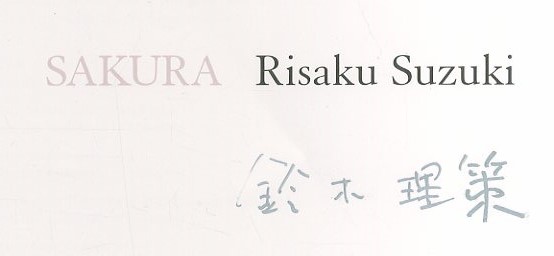 SAKURA Risaku Suzuki
鈴木理策